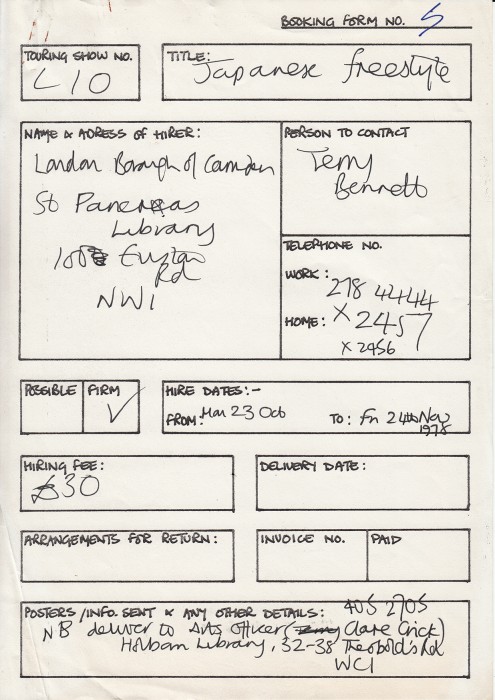 BOOKING FORM NO. 5
TOURING SHOW NO.
L10
TITLE: Japanese freestyle
NAME & ADRESS OF HIRER:
London Borough of Camden
St Pancras
Library
100 Euston
Rd
NW1
PERSON TO CONTACT
Terry
Bennett
TELEPHONE NO.
WORK: 278 4444
HOME: X 2457
X 2456
POSSIBLE
FIRM ✓
HIRE DATES:-
FROM: Mon 23 Oct TO: Fri 24th Nov
1978
HIRING FEE:
£30
DELIVERY DATE:
ARRANGEMENTS FOR RETURN:
INVOICE NO.
PAID
POSTERS/INFO. SENT & ANY OTHER DETAILS: 405 2705
NB deliver to Arts Officer (Clare Crick)
Holborn Library, 32-38 Theobald's Rd
WC1